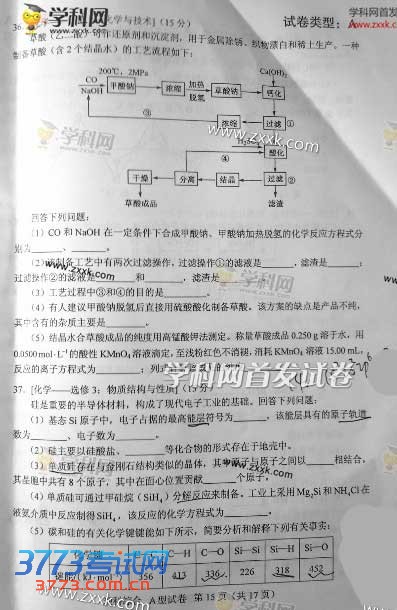 36.
化学与技术] (15 分)
试卷类型: A
草酸(乙二酸)
作还原剂和沉淀剂,用于金属除锈、织物漂白和稀土生产。一种
制备草酸(含 2 个结晶水)的工艺流程如下:
200℃, 2MPa
Ca(OH)₂
CO
NaOH
甲酸钠
浓缩
加热
脱氢
草酸钠
钙化
③
浓缩
过滤
①
④
酸化
干燥
分离
结晶
过滤
②
草酸成品
滤渣
回答下列问题:
(1) CO 和 NaOH 在一定条件下合成甲酸钠、甲酸钠加热脱氢的化学反应方程式分
别为______、______。
(2) 该制备工艺中有两次过滤操作,过滤操作①的滤液是______,滤渣是______;
过滤操作②的滤液是______和______,滤渣是______。
(3) 工艺过程中③和④的目的是______。
(4) 有人建议甲酸钠脱氢后直接用硫酸酸化制备草酸。该方案的缺点是产品不纯,
其中含有的杂质主要是______。
(5) 结晶水合草酸成品的纯度用高锰酸钾法测定。称量草酸成品 0.250 g 溶于水,用
0.0500 mol·L⁻¹ 的酸性 KMnO₄ 溶液滴定,至浅粉红色不消褪,消耗 KMnO₄ 溶液 15.00 mL,
反应的离子方程式为______;列式
37. [化学——选修 3:物质结构与性质] (15 分)
硅是重要的半导体材料,构成了现代电子工业的基础。回答下列问题:
(1) 基态 Si 原子中,电子占据的最高能层符号为______,该能层具有的原子轨道
数为______、电子数为______。
(2) 硅主要以硅酸盐、______等化合物的形式存在于地壳中。
(3) 单质硅存在与金刚石结构类似的晶体,其中原子与原子之间以______相结合,
其晶胞中共有 8 个原子,其中在面心位置贡献______个原子。
(4) 单质硅可通过甲硅烷 (SiH₄) 分解反应来制备。工业上采用 Mg₂Si 和 NH₄Cl 在
液氨介质中反应制得 SiH₄,该反应的化学方程式为______。
(5) 碳和硅的有关化学键键能如下所示,简要分析和解释下列有关事实:
化学键 C—H C—O Si—Si Si—H Si—O
键能/(kJ·mol⁻¹) 356 413 336 226 318 452
A型试卷 第 15 页(共 17 页)
学科网首发试卷
www.zxxk.com
学科网
3773考试网
www.zxxk.com